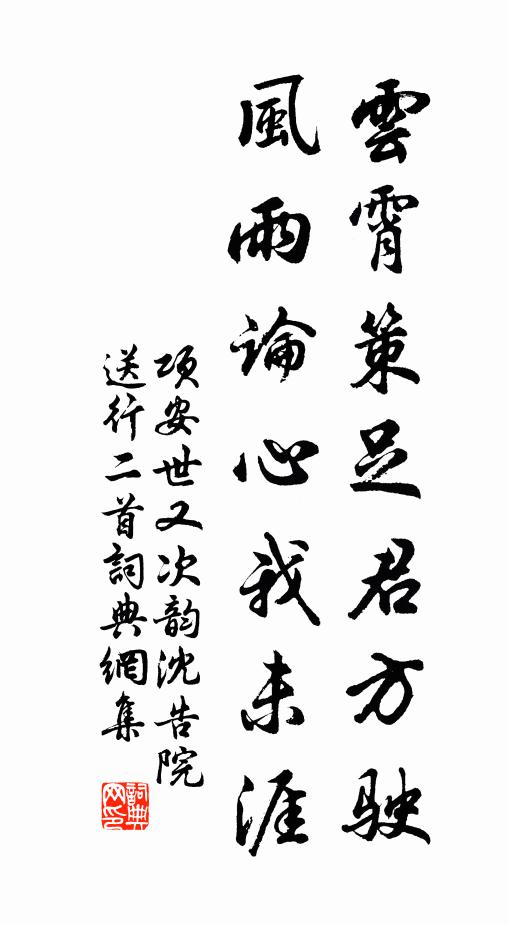 雲霄策足君方駛
風雨論心我未涯
項安世又次韵沈告院
送行二首詞典網集
詞典
网印